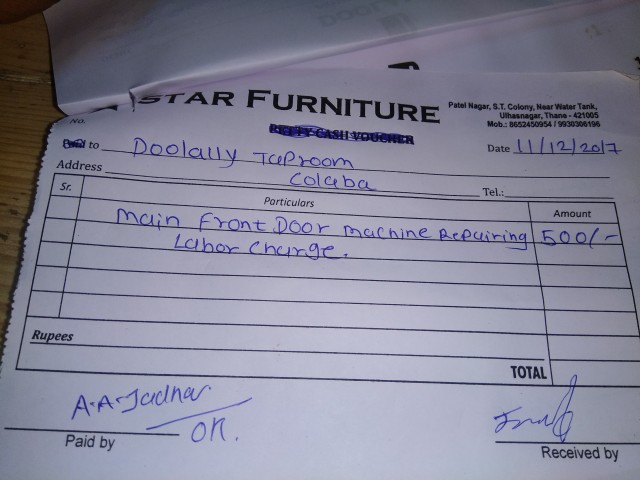 STAR FURNITURE
Patel Nagar, S.T. Colony, Near Water Tank,
Ulhasnagar, Thane - 421005
Mob.: 8652450954 / 9930366196
No.
PETTY CASH VOUCHER
Paid to Doolally Taproom
Date 11/12/2017
Address Colaba
Tel.:
Sr. Particulars Amount
Main Front Door machine Repairing 500/-
Labor charge.
Rupees
TOTAL
A.A. Jadhav
OK.
Paid by
Received by